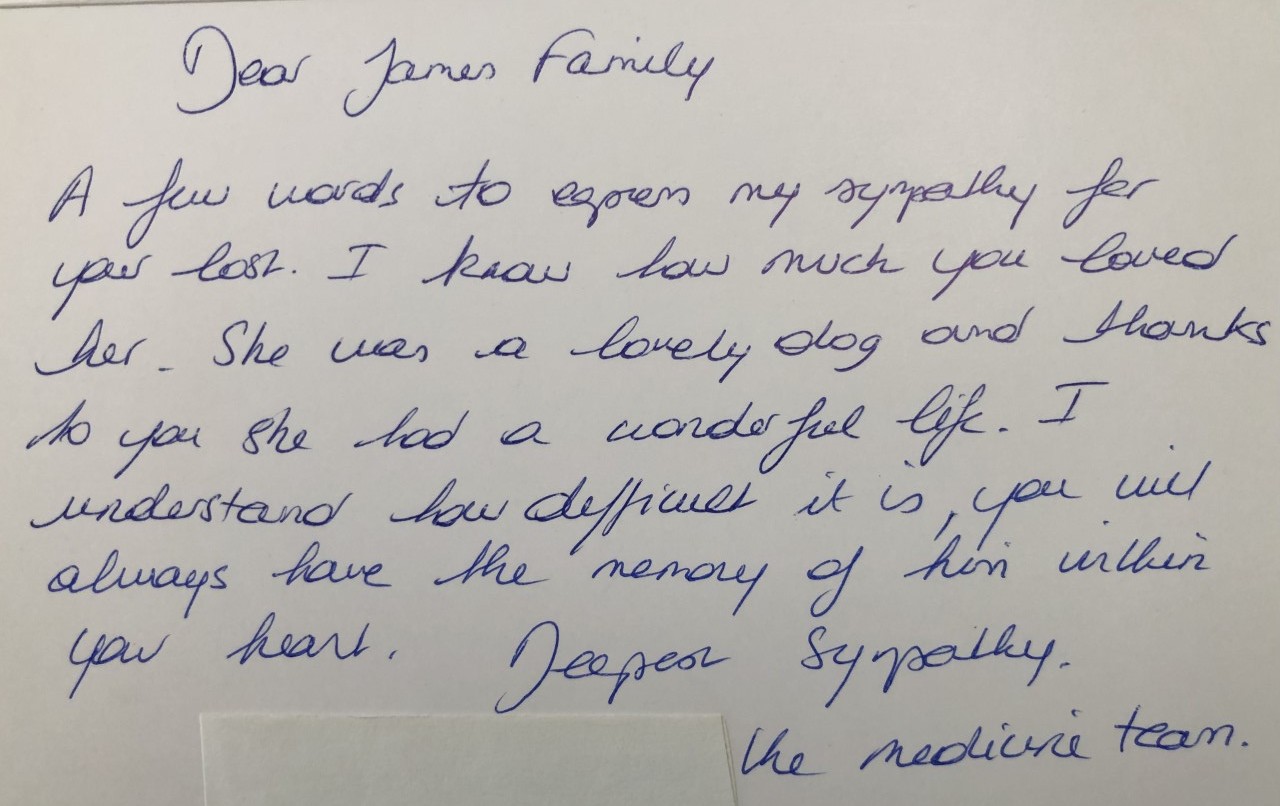 Dear James Family
A few words to express my sympathy for
your lost. I know how much you loved
her. She was a lovely dog and thanks
to you she had a wonderful life. I
understand how difficult it is, you will
always have the memory of him within
your heart. Deepest Sympathy.
the medicine team.